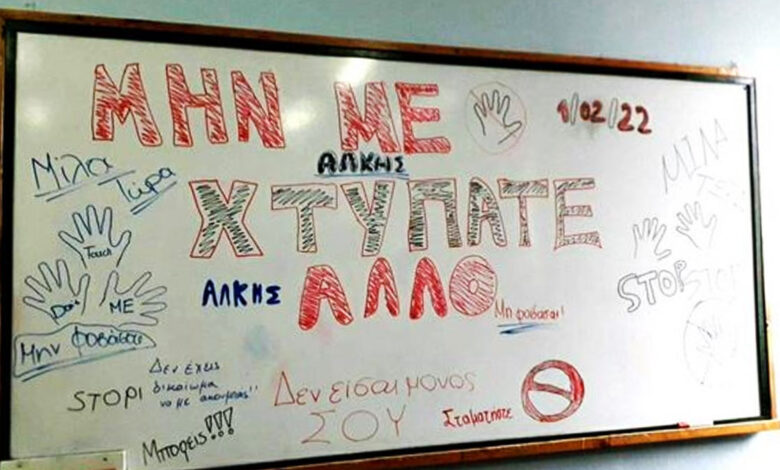 ΜΗΝ ΜΕ
1/02/22
ΑΛΚΗΣ
Μίλα
Τώρα
ΜΙΛΑ
ΧΤΥΠΑΤΕ
Touch
Don't
ΜΕ
Μην φοβάσαι
STOP
STOP
ΑΛΚΗΣ
ΑΛΛΟ
Μη φοβάσαι!
STOP!
Δεν έχεις
δικαίωμα
να με ακουμπάς!!
Δεν είσαι μόνος
ΣΟΥ
Σταματήστε
Μπορείς!!!